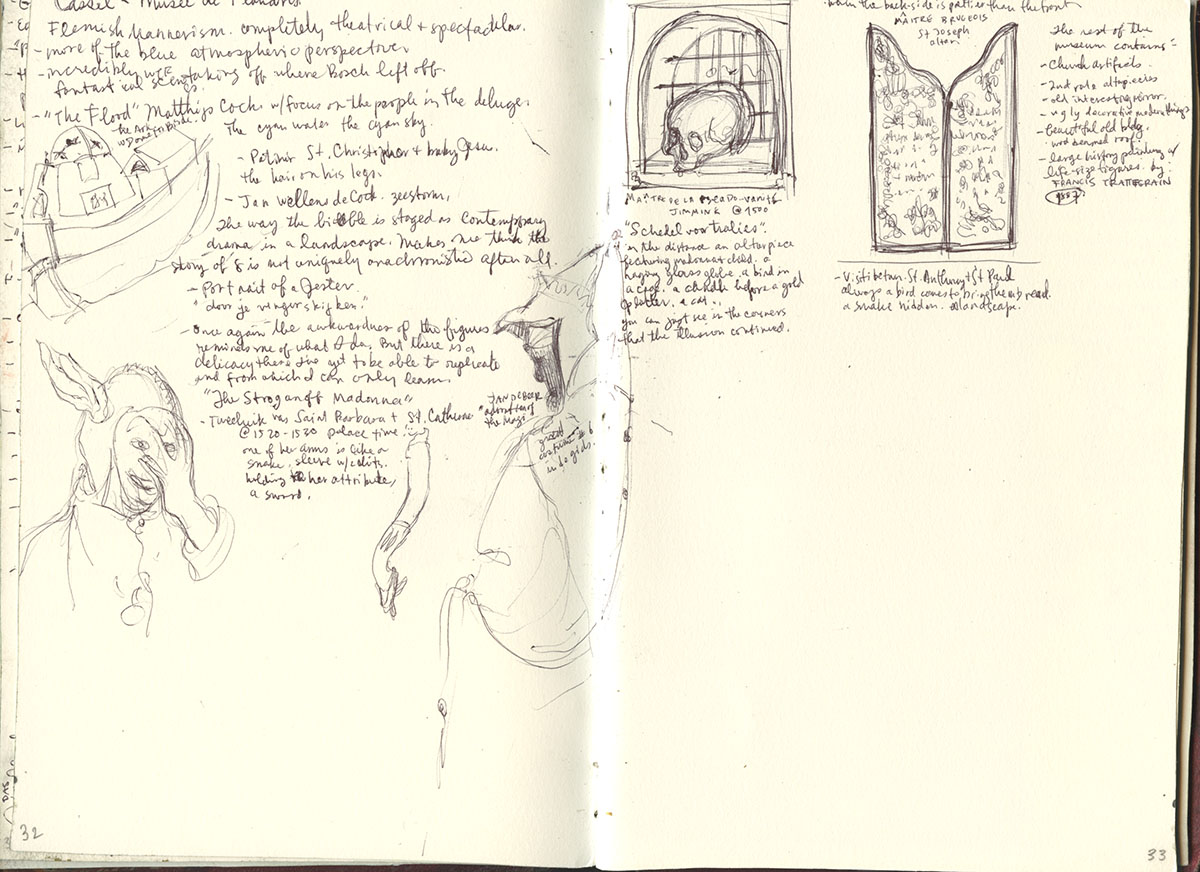 Cassel - Musée de Flandres
Flemish Mannerism. completely theatrical + spectacular.
- more of the blue atmospheric perspective.
- incredibly
taking off where Bosch left off.
fantastical scenes.
- "The Flood" Matthijs Cock w/focus on the people in the deluge.
the Ark
w/ Dome
The cyan water the cyan sky.
- Patinir St. Christopher + baby Jesu.
the hair on his legs.
- Jan Wellens de Cock. zeestorm,
the way the bible is staged as contemporary
drama in a landscape. Makes one think the
story of 8 is not uniquely anachronistic after all.
- Portrait of a Jester.
"door je vingers kijken."
- once again the awkwardness of the figures
reminds me of what I do. But there is a
delicacy there I've yet to be able to replicate
and from which I can only learn.
"The Stroganoff Madonna"
- Tweeluik van Saint Barbara + St. Catherine
@ 1520-1530 palace time!
one of her arms is like a
snake. sleeve w/ slits.
holding her attribute,
a sword.
JAN DE BEER
"adoration of
the Magi
great
costume
32
when the backside is prettier than the front
MAÎTRE BRUGEOIS
St Joseph
altar
MAÎTRE DE LA PSEADO-vanité
JIMMINK @ 1500
"Schedel voor tralies".
in the distance an altarpiece
featuring madonna + child. a
hanging glass globe. a bird in
a cage. a candle before a gold
platter. a cat.
you can just see in the corners
that the illusion continued.
- Visit betw. St. Anthony + St Paul
always a bird comes to bring them bread.
a snake hidden. landscape.
The rest of the
museum contains =
- Church artifacts.
- 2nd role altarpieces
- old interesting mirror.
- ugly decorative modern things
- beautiful old bldg.
wood beamed roof.
- large history painting w/
life-size figures. by
FRANCIS TATTEGRAIN
1887
33